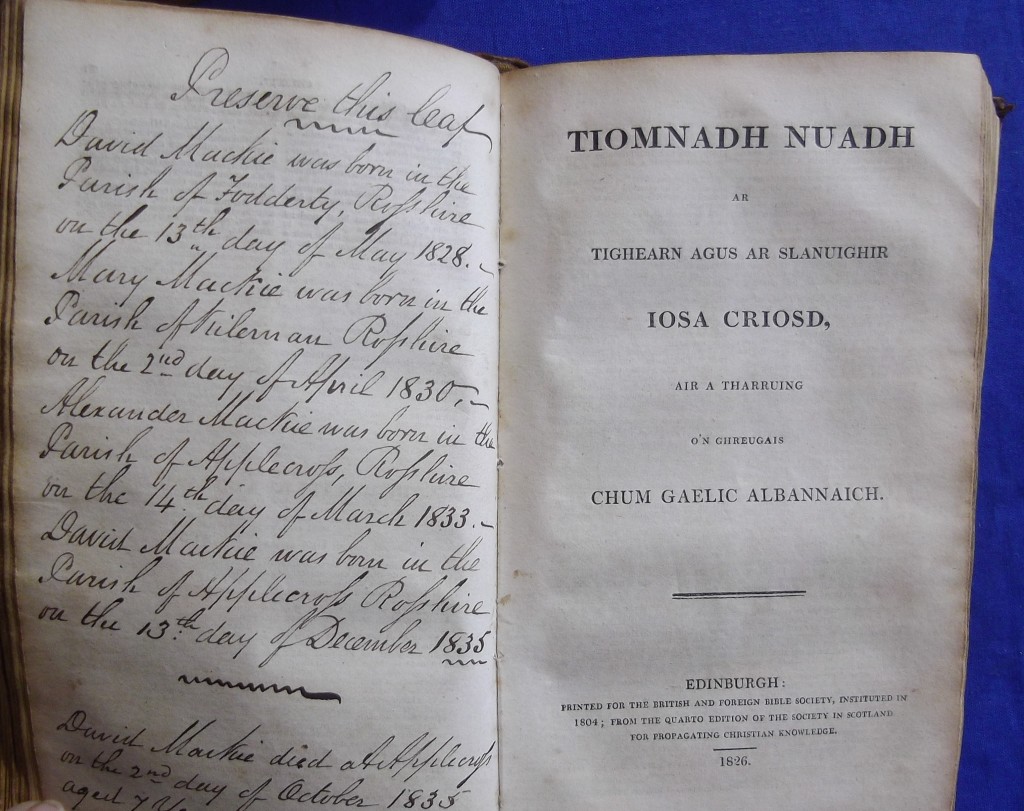 Preserve this leaf
David Mackie was born in the
Parish of Fodderty, Rossshire
on the 13th day of May 1828.
Mary Mackie was born in the
Parish of Kilernan Rossshire
on the 2nd day of April 1830,
Alexander Mackie was born in the
Parish of Applecross, Rossshire
on the 14th day of March 1833.
David Mackie was born in the
Parish of Applecross Rossshire
on the 13th day of December 1835
David Mackie died at Applecross
on the 2nd day of October 1835
aged 7
TIOMNADH NUADH
AR
TIGHEARN AGUS AR SLANUIGHIR
IOSA CRIOSD,
AIR A THARRUING
O'N GHREUGAIS
CHUM GAELIC ALBANNAICH.
EDINBURGH:
PRINTED FOR THE BRITISH AND FOREIGN BIBLE SOCIETY, INSTITUTED IN
1804; FROM THE QUARTO EDITION OF THE SOCIETY IN SCOTLAND
FOR PROPAGATING CHRISTIAN KNOWLEDGE.
1826.